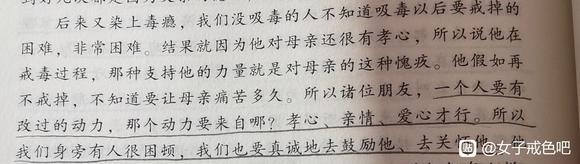 后来又染上毒瘾，我们没吸毒的人不知道吸毒以后要戒掉的
困难，非常困难。结果就因为他对母亲还很有孝心，所以说他在
戒毒过程，那种支持他的力量就是对母亲的这种愧疚。他假如再
不戒掉，不知道要让母亲痛苦多久。所以诸位朋友，一个人要有
改过的动力，那个动力要来自哪？孝心、亲情、爱心才行。所以
我们身旁有人很困顿，我们也要真诚地去鼓励他、去关怀他
@女子戒色吧